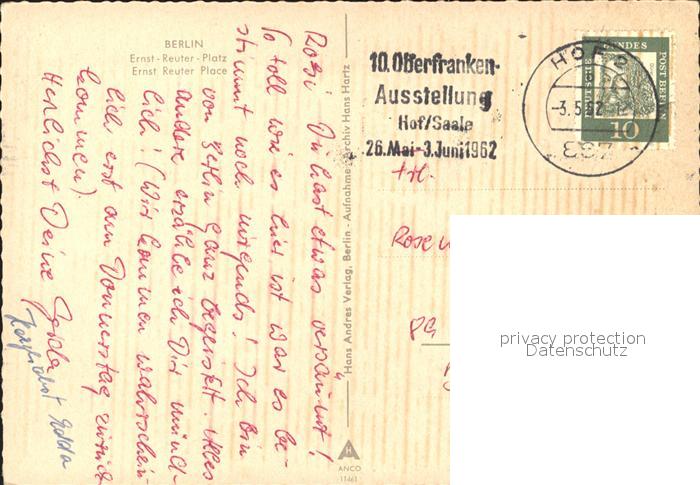 BERLIN
Ernst-Reuter-Platz
Ernst Reuter Place
Rosi Du hast etwas versäumt!
So toll wie es hier ist war es be-
stimmt noch nirgends! Ich bin
von Berlin ganz begeistert. Alles
andere erzähle ich Dir münd-
lich! (Wir kommen wahrschein-
lich erst am Donnerstag zurück
kommen).
Herlichst Deine Gerda
Herzlichst Edda
Hans Andres Verlag, Berlin - Aufnahme: Archiv Hans Hartz
H
ANCO
11461
10. Oberfranken-
Ausstellung
Hof/Saale
26. Mai - 3. Juni 1962
HOF
-3.5.62
DEUTSCHE BUNDESPOST BERLIN
10
Frl.
Rose
privacy protection
Datenschutz